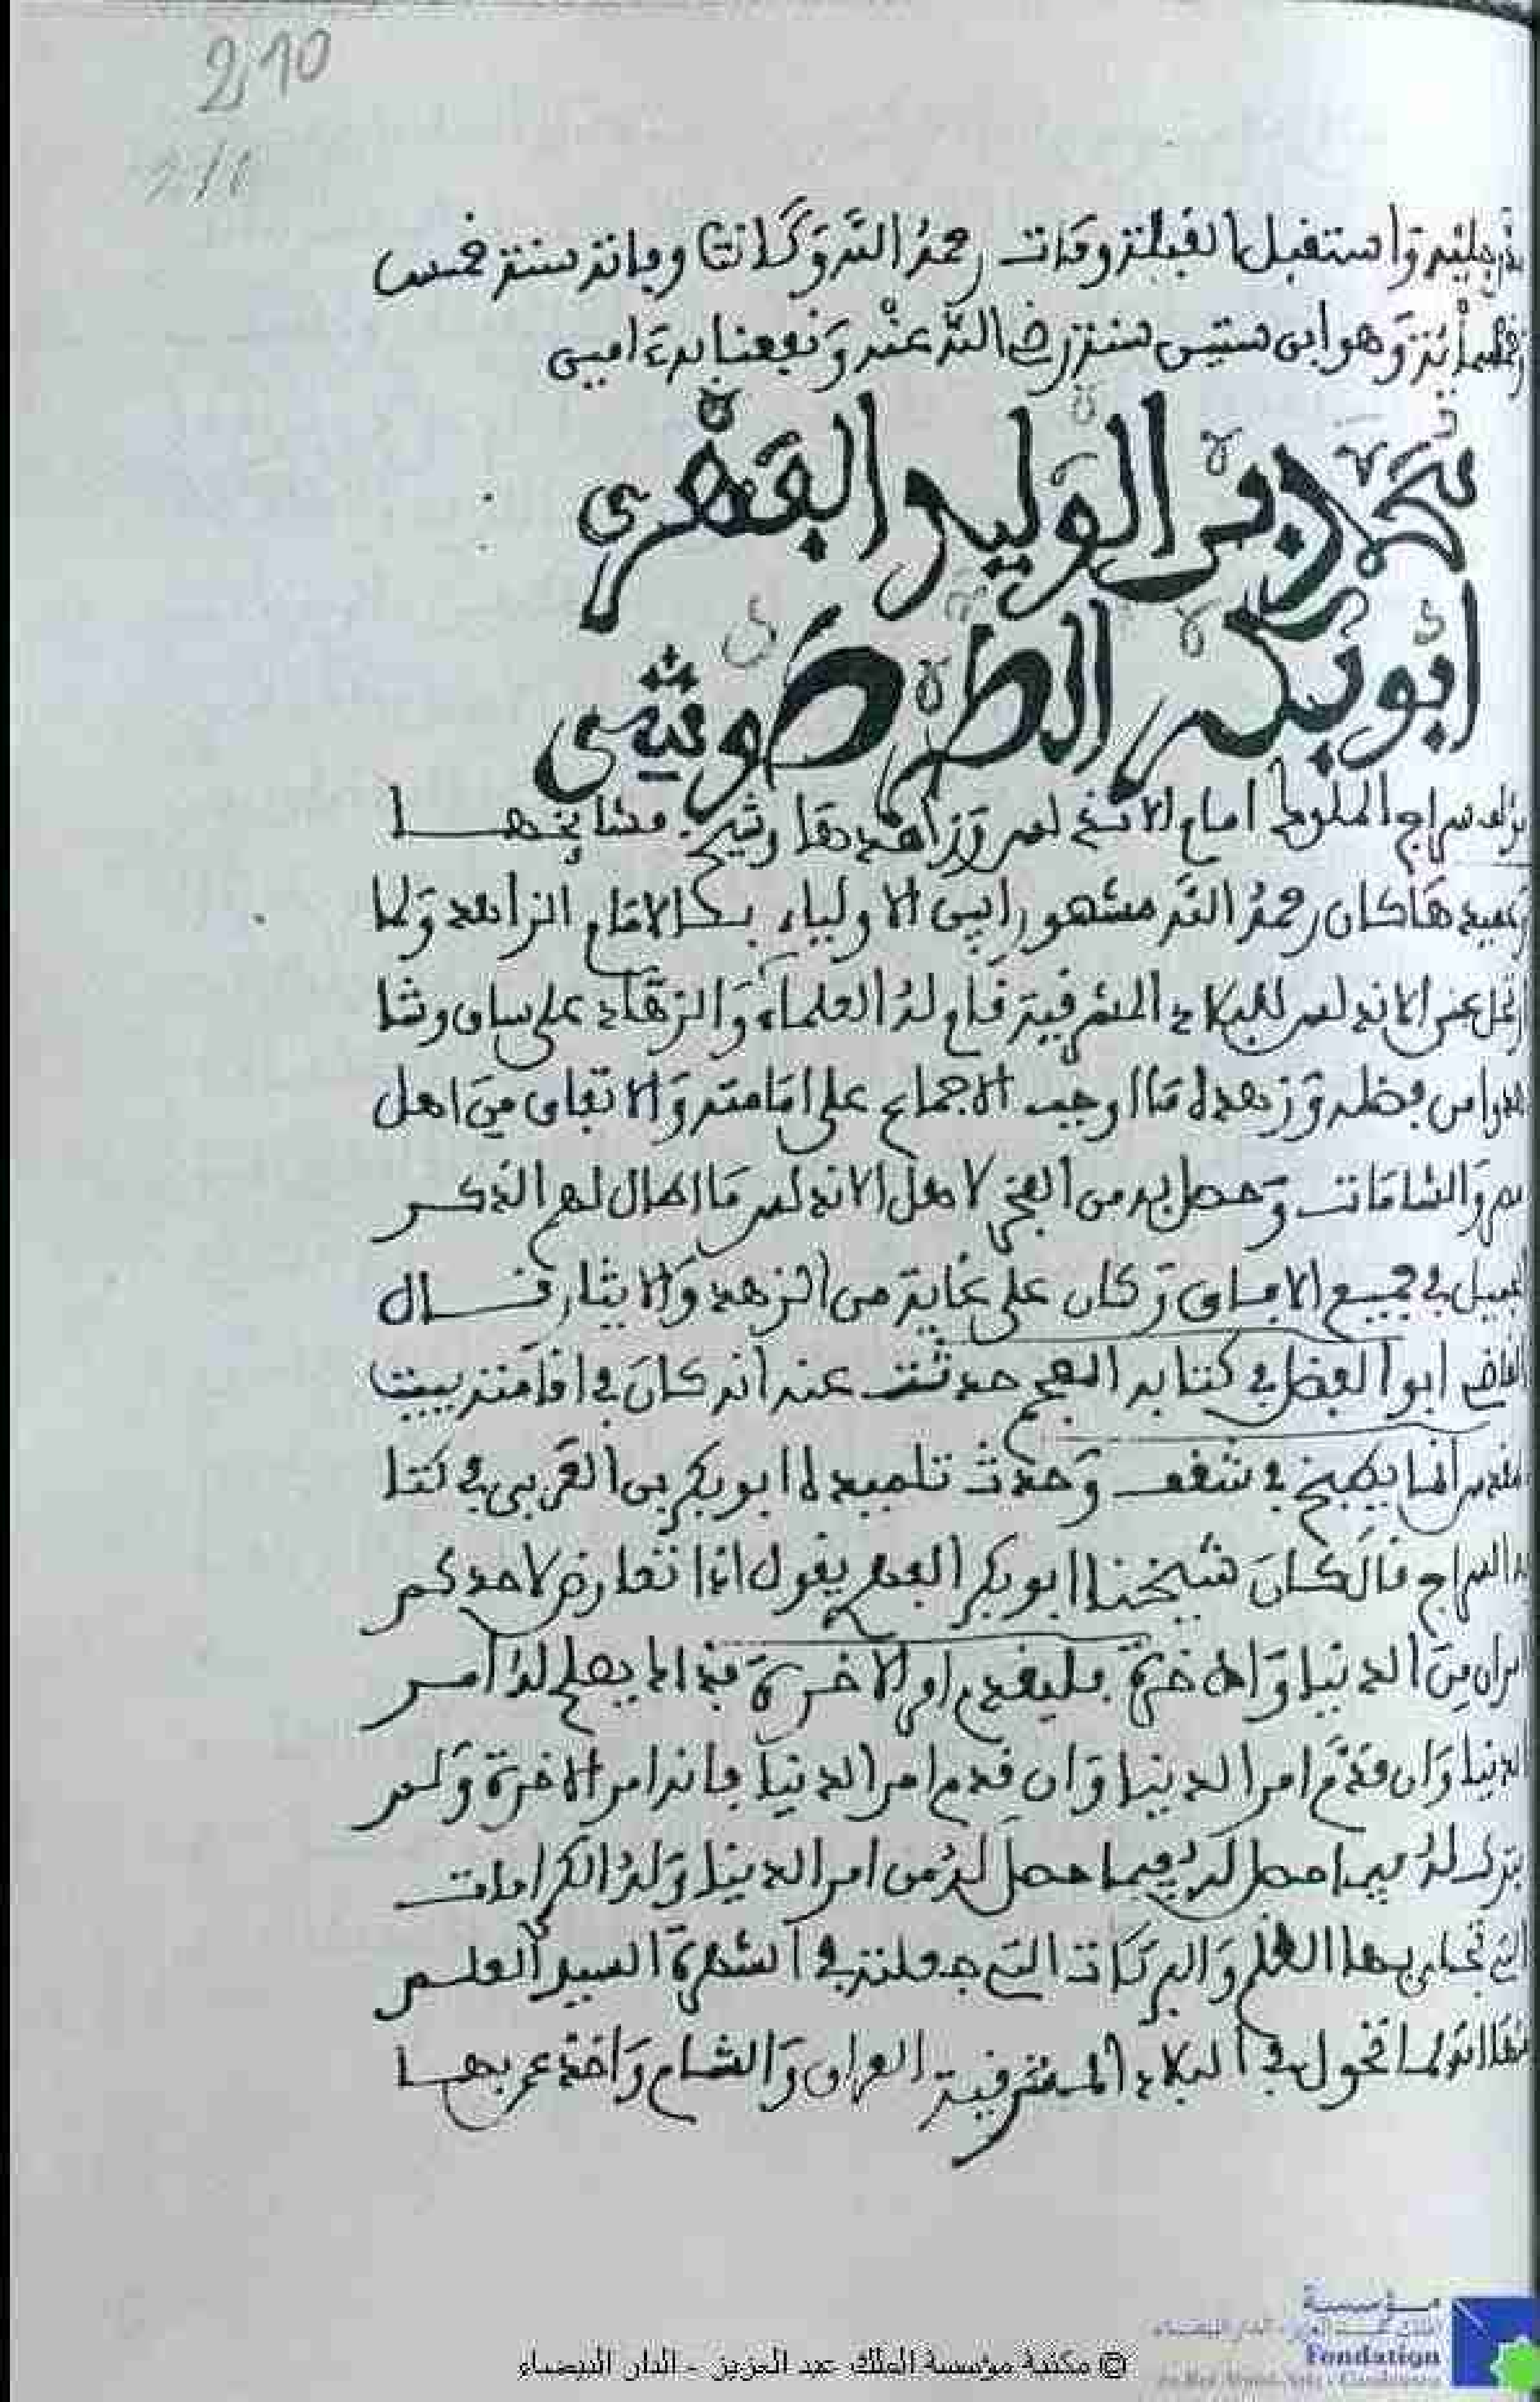 210
211
واستقبل القبلة ومات رحمه الله وكانت وفاته سنة خمس
وهو ابن ستين سنة رضي الله عنه ونفعنا به ءامين
محمد بن الوليد الفهري
أبو بكر الطرطوشي
سراج الملوك امام الاندلس وزاهدها وشيخ مشايخها
كان رحمه الله مشهورا بين الاولياء بكالامام الزاهد ولما
عن الاندلس للبلاد المشرقية قام له العلماء والزهاد على ساق وشا
هدوا من فضله وزهده ما اوجب الاجماع على امامته والاتفاق من اهل
والشامات وحصل به من الفخر لاهل الاندلس ما اطال لهم الذكر
الجميل في جميع الافاق وكان على غاية من الزهد والايثار قال
القاضي ابو الفضل في كتابه المعجم حدثت عنه انه كان في اقامته ببيت
المقدس انما يطبخ في شقف وحدث تلميذه ابو بكر بن العربي في كتا
به السراج قال كان شيخنا ابو بكر الفهري يقول اذا تعارض لاحدكم
امران من الدنيا والاخرة فليقدم امر الاخرة
الدنيا وان قدم امر الدنيا وان قدم امر الدنيا فاته امر الاخرة ولم
يترك له فيما حصل له فيما حصل له من امر الدنيا وله الكرامات
التي والبركات التي جعلته في الشهرة السيد العلم
لما تحول في البلاد المشرقية العراق والشام واخذ عمن بها
© مكتبة مؤسسة الملك عبد العزيز - الدار البيضاء
مؤسسة
Fondation